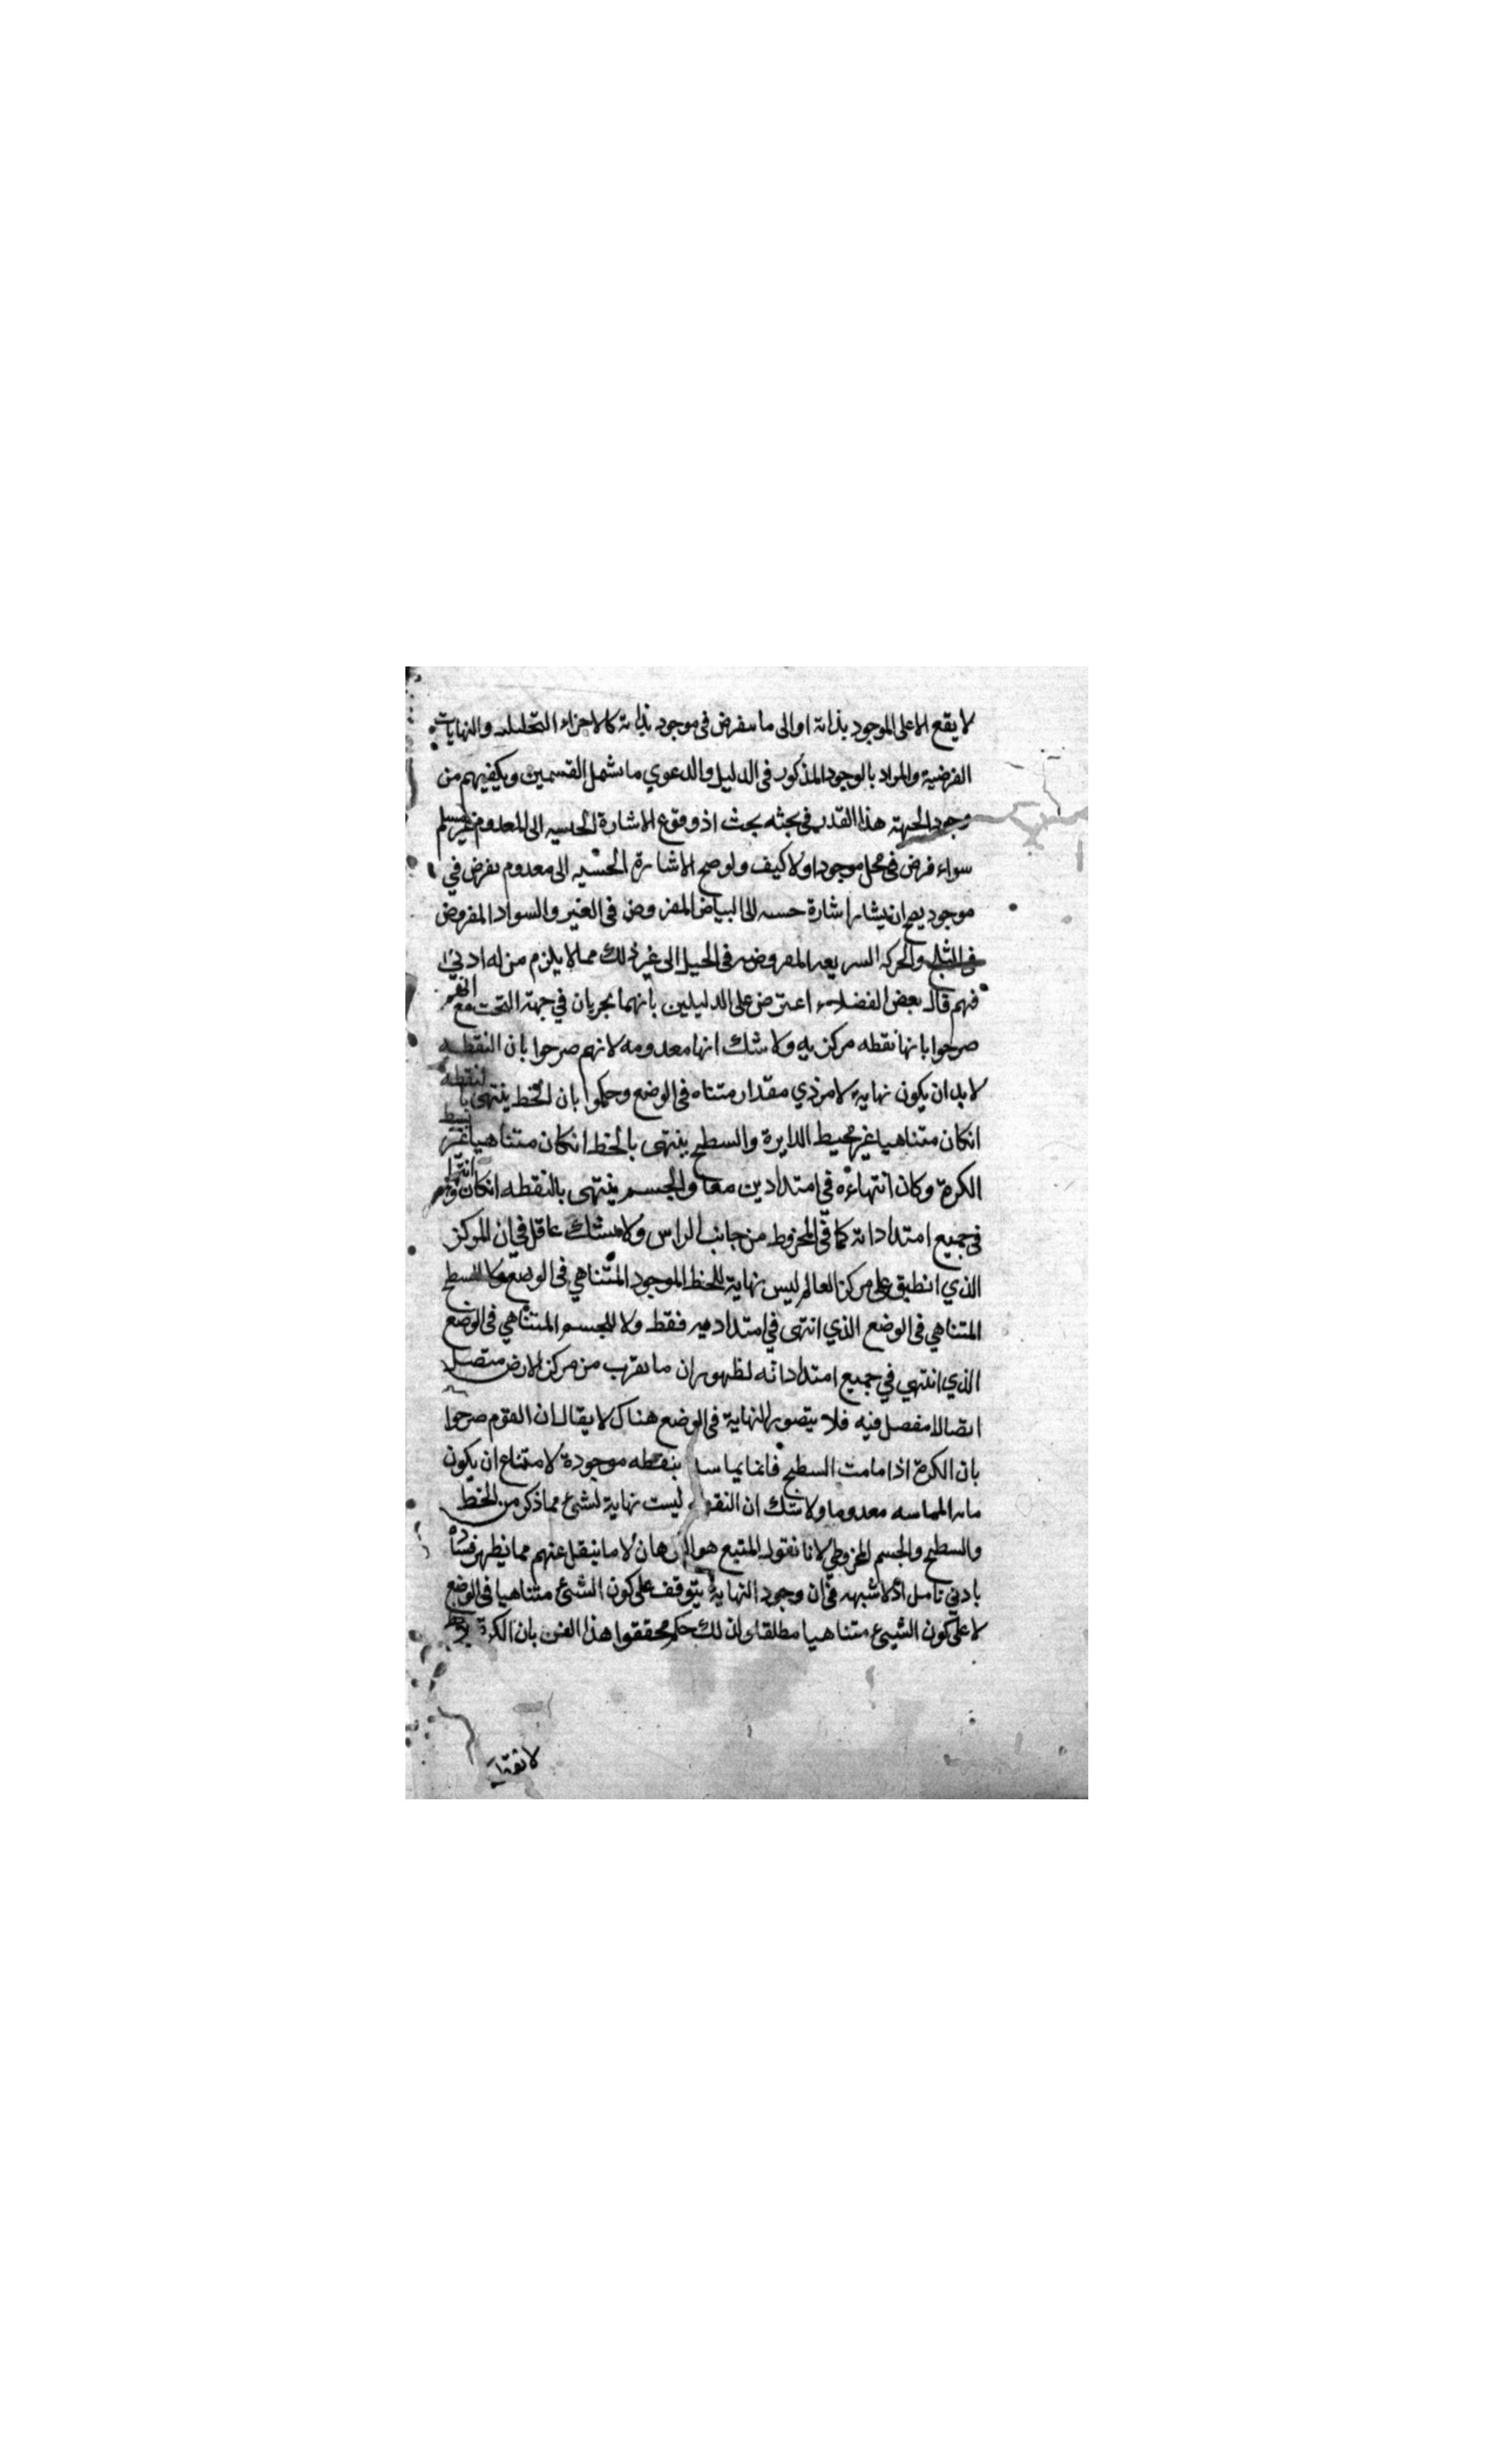 لا يقع الا على الموجود بذاته او الى ما يفرض في موجود بذاته كالاجزاء التحليليه والنهايات
الفرضية والمراد بالوجود المذكور في الدليل والدعوي ما يشمل القسمين ويكفيهم من
وجود الجهة هذا القدر في بحثه بحث اذ وقوع الاشارة الحسيه الى المعدوم غير مسلم
سواء فرض في محل موجود اولا كيف ولو صح الاشارة الحسيه الى معدوم يفرض في
موجود يصح ان يشار اشارة حسيه الى البياض المفروض في القير والسواد المفروض
في الثلج والحركه السريعه المفروضه في الجبل الى غير ذلك مما لا يلزم من له ادني
فهم قال بعض الفضلاء اعترض على الدليلين بانهما يجريان في جهة التحت مع القوم
صرحوا بانها نقطه مركزيه ولا شك انها معدومه لانهم صرحوا بان النقطه
لا بد ان يكون نهاية لامر ذي مقدار متناه في الوضع وحكموا بان الخط ينتهي بالنقطة
انكان متناهيا غير محيط الدايرة والسطح ينتهى بالخط انكان متناهيا غير بسيط
الكرة وكان انتهاءه في امتدادين معا والجسم ينتهى بالنقطه انكان انتهاؤه
في جميع امتداداته كما في المخروط من جانب الراس ولا يشك عاقل في ان المركز
الذي انطبق على مركز العالم ليس نهاية للخط الموجود المتناهي في الوضع ولا للسطح
المتناهي في الوضع الذي انتهى في امتداديه فقط ولا للجسم المتناهي في الوضع
الذي انتهي في جميع امتداداته لظهور ان ما يقرب من مركز الارض متصل
اتصالا مفصل فيه فلا يتصور النهاية في الوضع هناك لا يقال ان القوم صرحوا
بان الكرة اذا مامت السطح فانما يماسه بنقطه موجودة لامتناع ان يكون
ما به المماسه معدوما ولا شك ان النقطه ليست نهاية لشئ مما ذكر من الخط
والسطح والجسم المخروطي لانا نقول المتبع هو البرهان لا ما ينقل عنهم مما يظهر فساده
بادني تامل اذ لا شبهه في ان وجود النهاية يتوقف على كون الشئ متناهيا في الوضع
لا على كون الشيئ متناهيا مطلقا ولذلك حكم محققوا هذا الفن بان الكرة